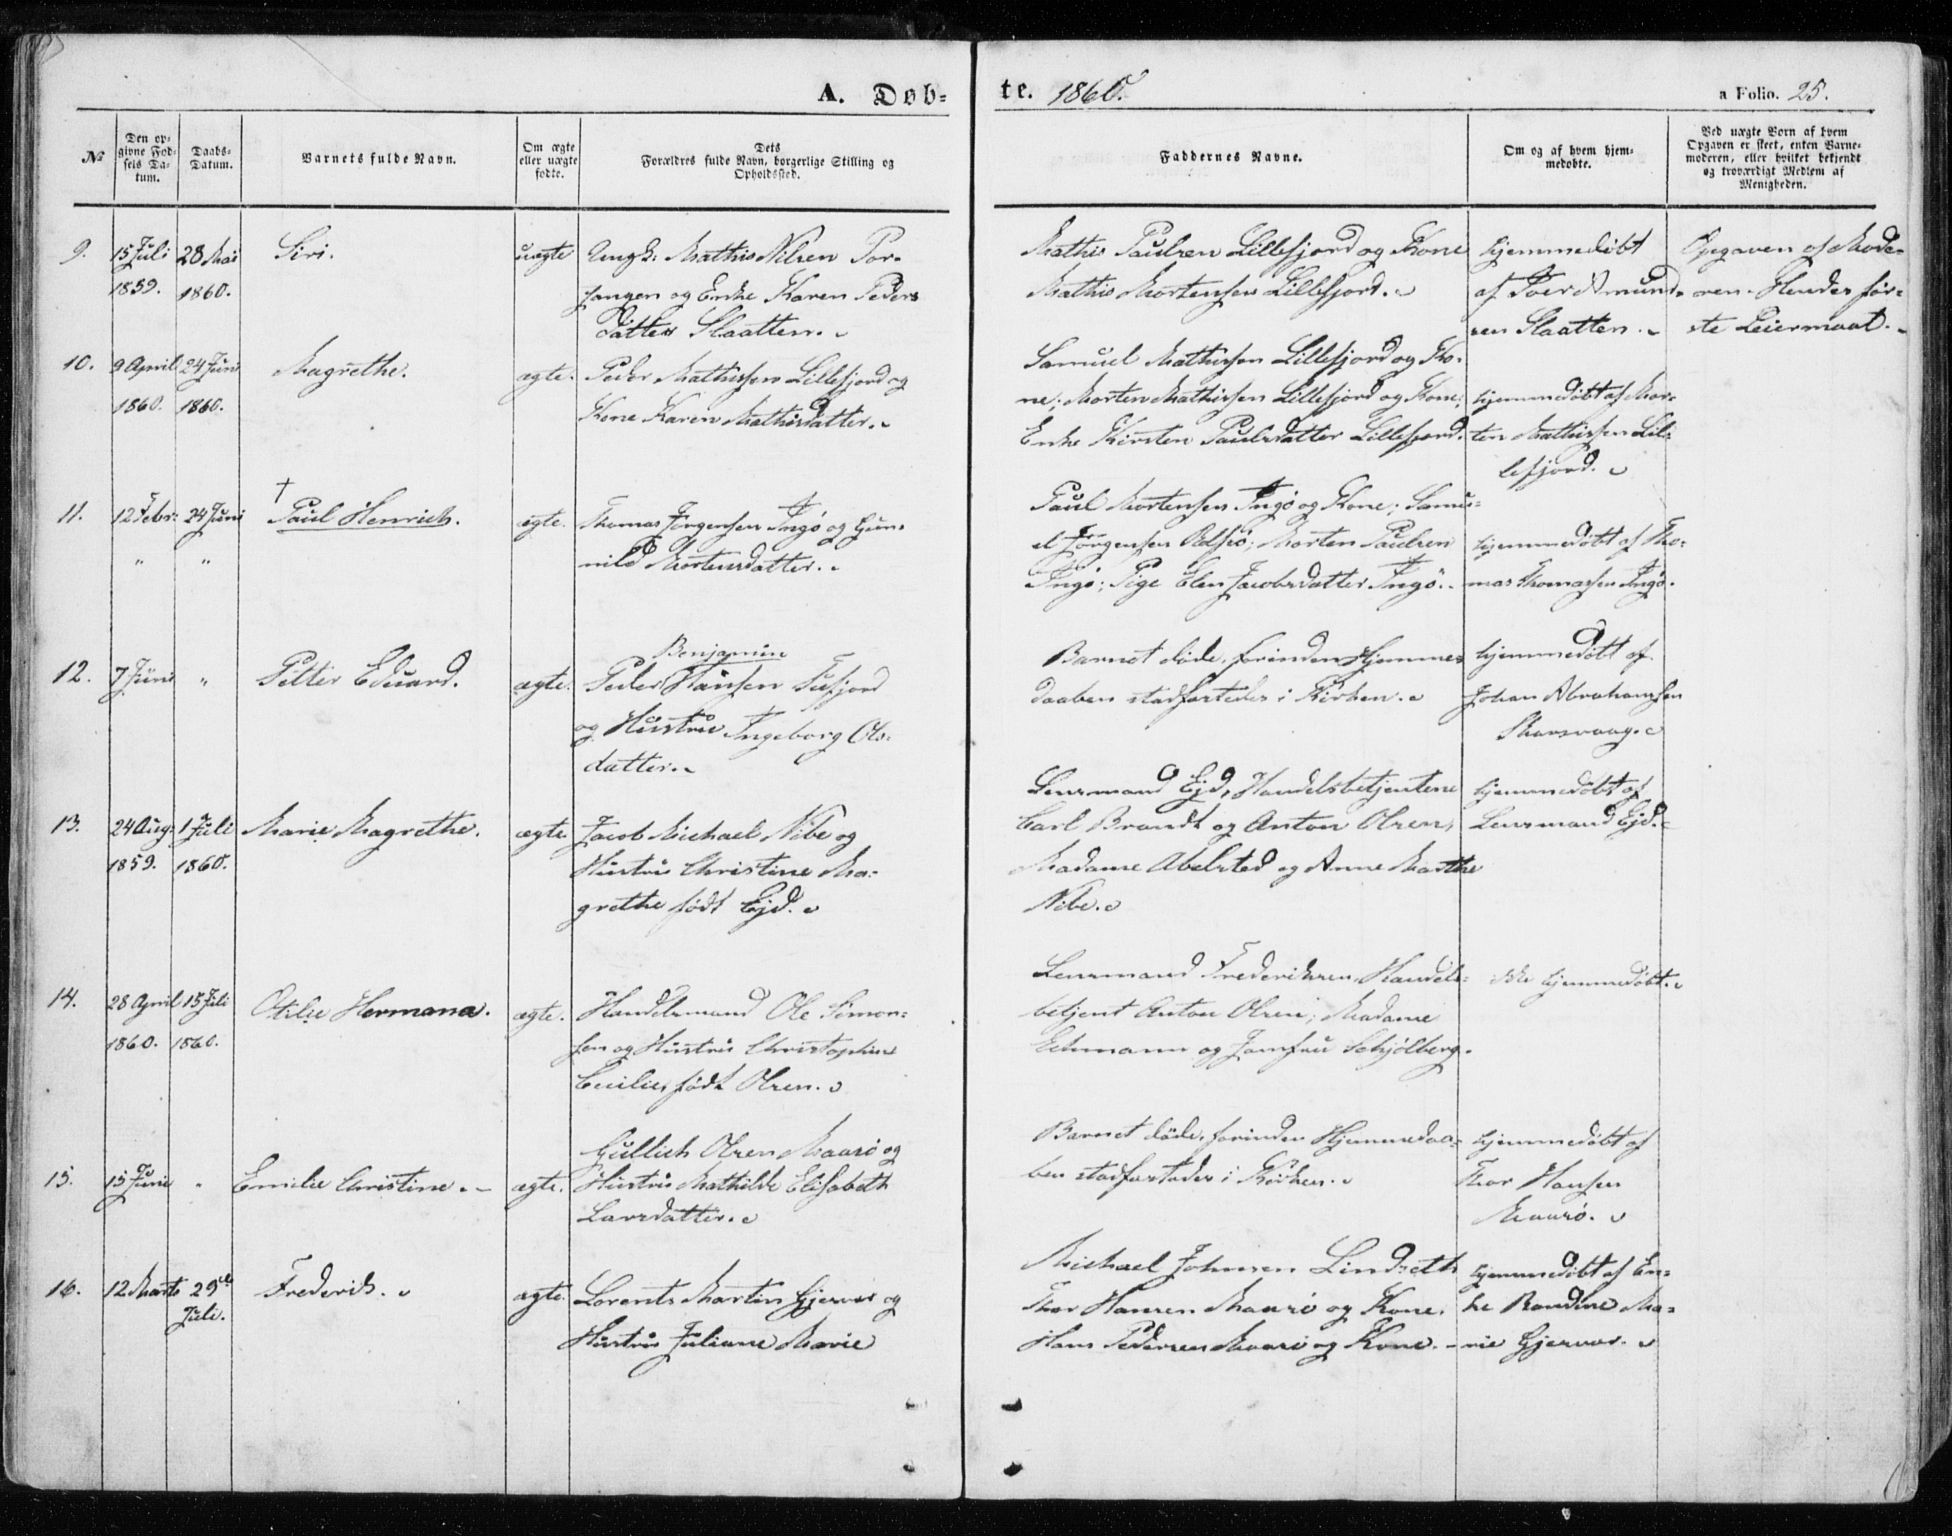 A. Døb-
te. 1860.
a Folio. 25.
No
Den op-
givne Fød-
sels Da-
tum.
Daabs-
Datum.
Barnets fulde Navn.
Om ægte
eller uægte
fødte.
Dets
Forældres fulde Navn, borgerlige Stilling og
Opholdssted.
Faddernes Navne.
Om og af hvem hjem-
medøbte.
Ved uægte Børn af hvem
Opgaven er skeet, enten Barne-
moderen, eller hvilket bekjendt
og troværdigt Medlem af
Menigheden.
9. 15 Juli 28 Mai Siri. uægte Ungk: Mathis Nilsen Por-
1859. 1860. sangen og Enke Karen Peders
datter Slaatten.
Mathis Paulsen Lillefjord og Kone
Mathis Mortensen Lillefjord.
hjemmedøbt
af Iver Amund-
sen Slaatten.
Opgaven af Mode-
ren. Hendes før-
ste Leiermaal.
10. 9 April 24 Juni Magrethe. ægte. Peder Mathissen Lillefjord og
1860. 1860. Kone Karen Mathisdatter.
Samuel Mathissen Lillefjord og Ko-
ne; Morten Mathissen Lillefjord og Kone;
Enke Kirsten Paulsdatter Lillefjord.
hjemmedøbt af Mor-
ten Mathissen Lil-
lefjord.
11. 12 Febr: 24 Juni † Paul Henrich. ægte. Thomas Jørgensen Ingø og Gun-
" " nild Mortensdatter.
Paul Mortensen Ingø og Kone; Samu-
el Jørgensen Rolfsø; Morten Paulsen
Ingø; Pige Elen Jacobsdatter Ingø.
hjemmedøbt af Tho-
mas Thomassen Ingø.
12. 7 Juni " Petter Eduard. ægte. Peder Benjamin Hansen Tufjord
og Hustru Ingeborg Ols-
datter.
Barnet døde, forinden Hjemme-
daaben stadfæstedes i Kirken.
hjemmedøbt af
Johan Abrahamsen
Skarsvaag.
13. 24 Aug: 1 Juli Marie Magrethe. ægte Jacob Michael Nibe og
1859. 1860. Hustru Christine Ma-
grethe født Ejd.
Lensmand Ejd, Handelsbetjentene
Carl Brandt og Anton Olsen,
Madame Abelsted og Anne Marthe
Nibe.
hjemmedøbt af
Lensmand Ejd.
14. 28 April 15 Juli Otilie Hermana. ægte. Handelsmand Ole Simon-
1860. 1860. sen og Hustru Christophine
Cecilie, født Olsen.
Lensmand Frederiksen, Handels-
betjent Anton Olsen; Madame
Echmann og Jomfru Schjølberg.
ikke hjemmedøbt.
15. 15 Juni " Emilie Christine. ægte. Gullich Olsen Maasø og
Hustru Mathilde Elisabeth
Larsdatter.
Barnet døde, forinden Hjemmedaa-
ben stadfæstedes i Kirken.
hjemmedøbt af
Thor Hansen
Maasø.
16. 12 Marts 29de Frederik. ægte. Lorents Martin Gjesvær og
Juli. Hustru Juliane Marie
Michael Johnsen Lindseth
Thor Hansen Maasø og Kone.
Hans Pedersen Maasø og Kone.
hjemmedøbt af En-
ke Randine Ma-
rie Gjesvær.